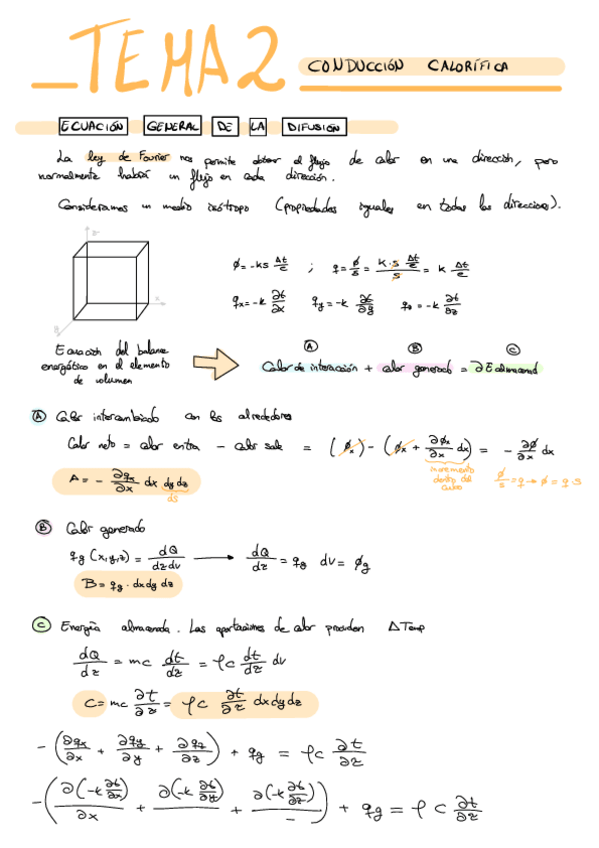 _TEMA 2
CONDUCCIÓN CALORÍFICA
ECUACIÓN GENERAL DE LA DIFUSIÓN
La ley de Fourier nos permite obtener el flujo de calor en una dirección, pero
normalmente habrá un flujo en cada dirección.
Consideramos un medio isótropo (propiedades iguales en todas las direcciones).
z
x
ϕ = -ks Δt/e ; q = ϕ/s = k·s Δt/e / s = k Δt/e
qx = -k ∂t/∂x qy = -k ∂t/∂y qz = -k ∂t/∂z
Ecuación del balance
energético en el elemento
de volumen
A B C
Calor de interacción + calor generado = ∂E almacenad
A Calor intercambiado con los alrededores
Calor neto = calor entra - calor sale = (ϕx) - (ϕx + ∂ϕx/∂x dx) = - ∂ϕ/∂x dx
incremento
dentro del
cubo
ϕ/s = q → ϕ = q·s
A = - ∂qx/∂x dx dy dz
ds
B Calor generado
qg (x,y,z) = dQ/dz dv → dQ/dz = qg dv = ϕg
B = qg · dx dy dz
C Energía almacenada. Las aportaciones de calor producen ΔTemp
dQ/dz = mc dt/dz = ρc dt/dz dv
C = mc ∂t/∂z = ρc ∂t/∂z dx dy dz
- (∂qx/∂x + ∂qy/∂y + ∂qz/∂z) + qg = ρc ∂t/∂z
- (∂(-k ∂t/∂x)/∂x + ∂(-k ∂t/∂y)/ + ∂(-k ∂t/∂z)/-) + qg = ρ c ∂t/∂z